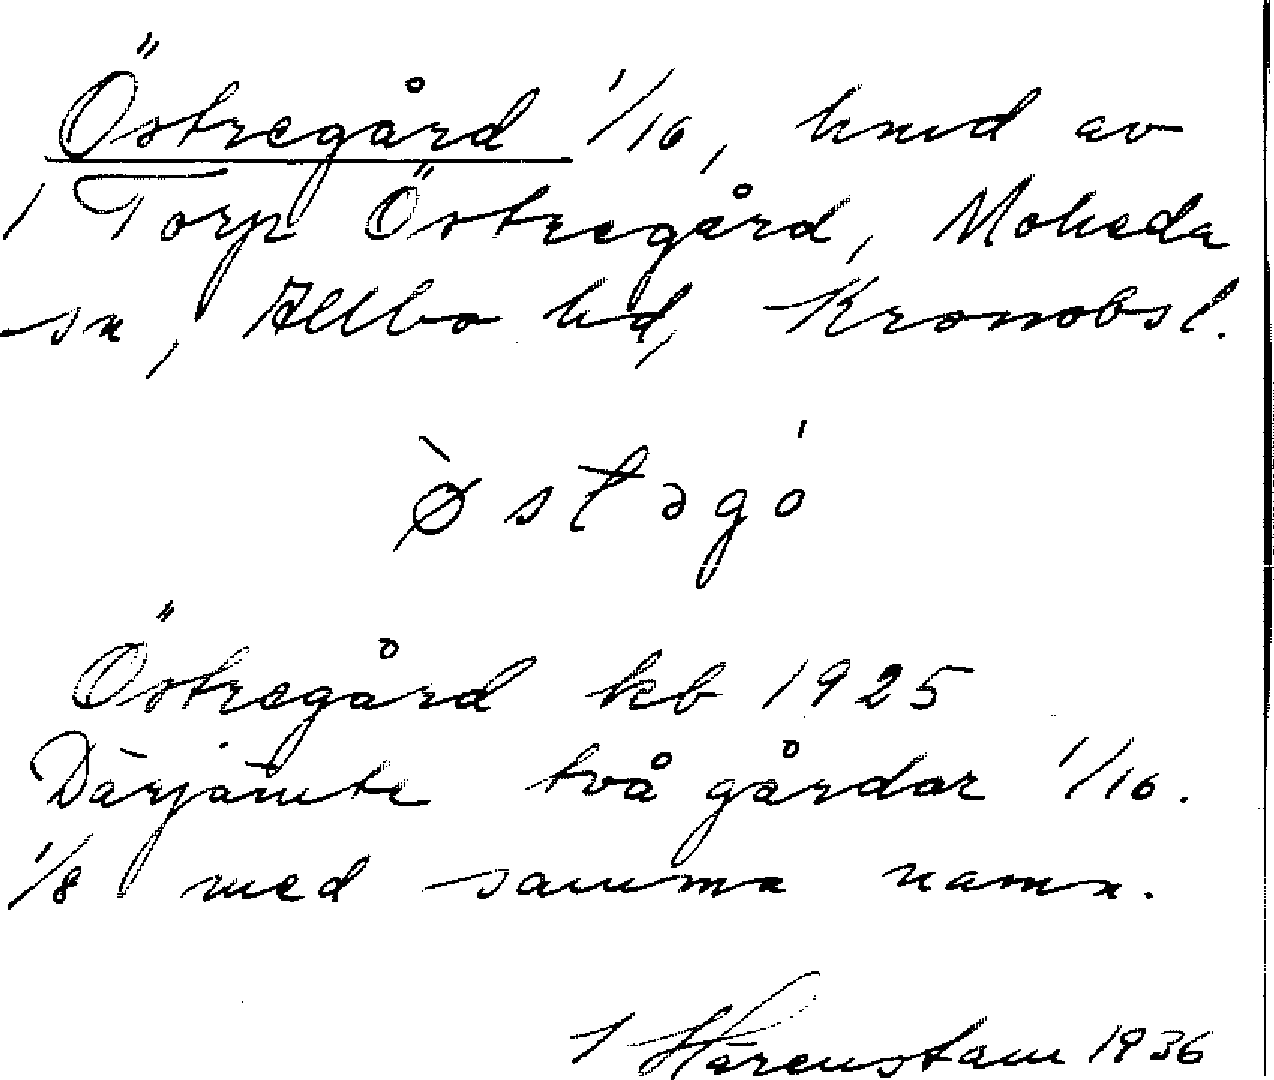 Östregård 1/16, hmd av
1 Torp Östregård, Moheda
sn, Allbo hd, Kronobsl.
ø̀stəgó
Östregård kb 1925
Därjämte två gårdar 1/16.
1/8 med samma namn.
Härenstam 1936